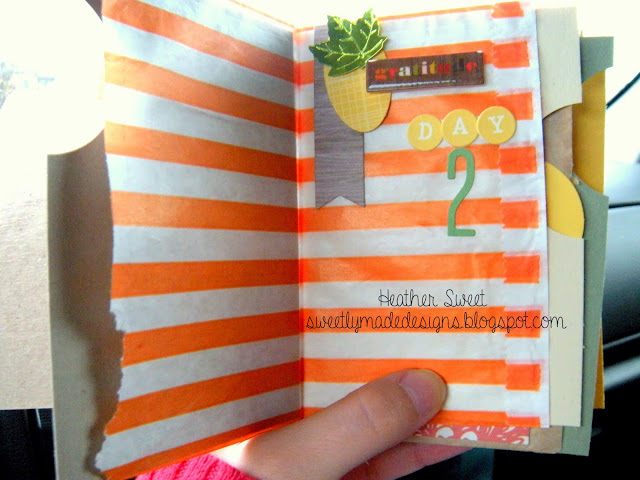 gratitude
DAY
2
Heather Sweet
sweetlymadedesigns.blogspot.com